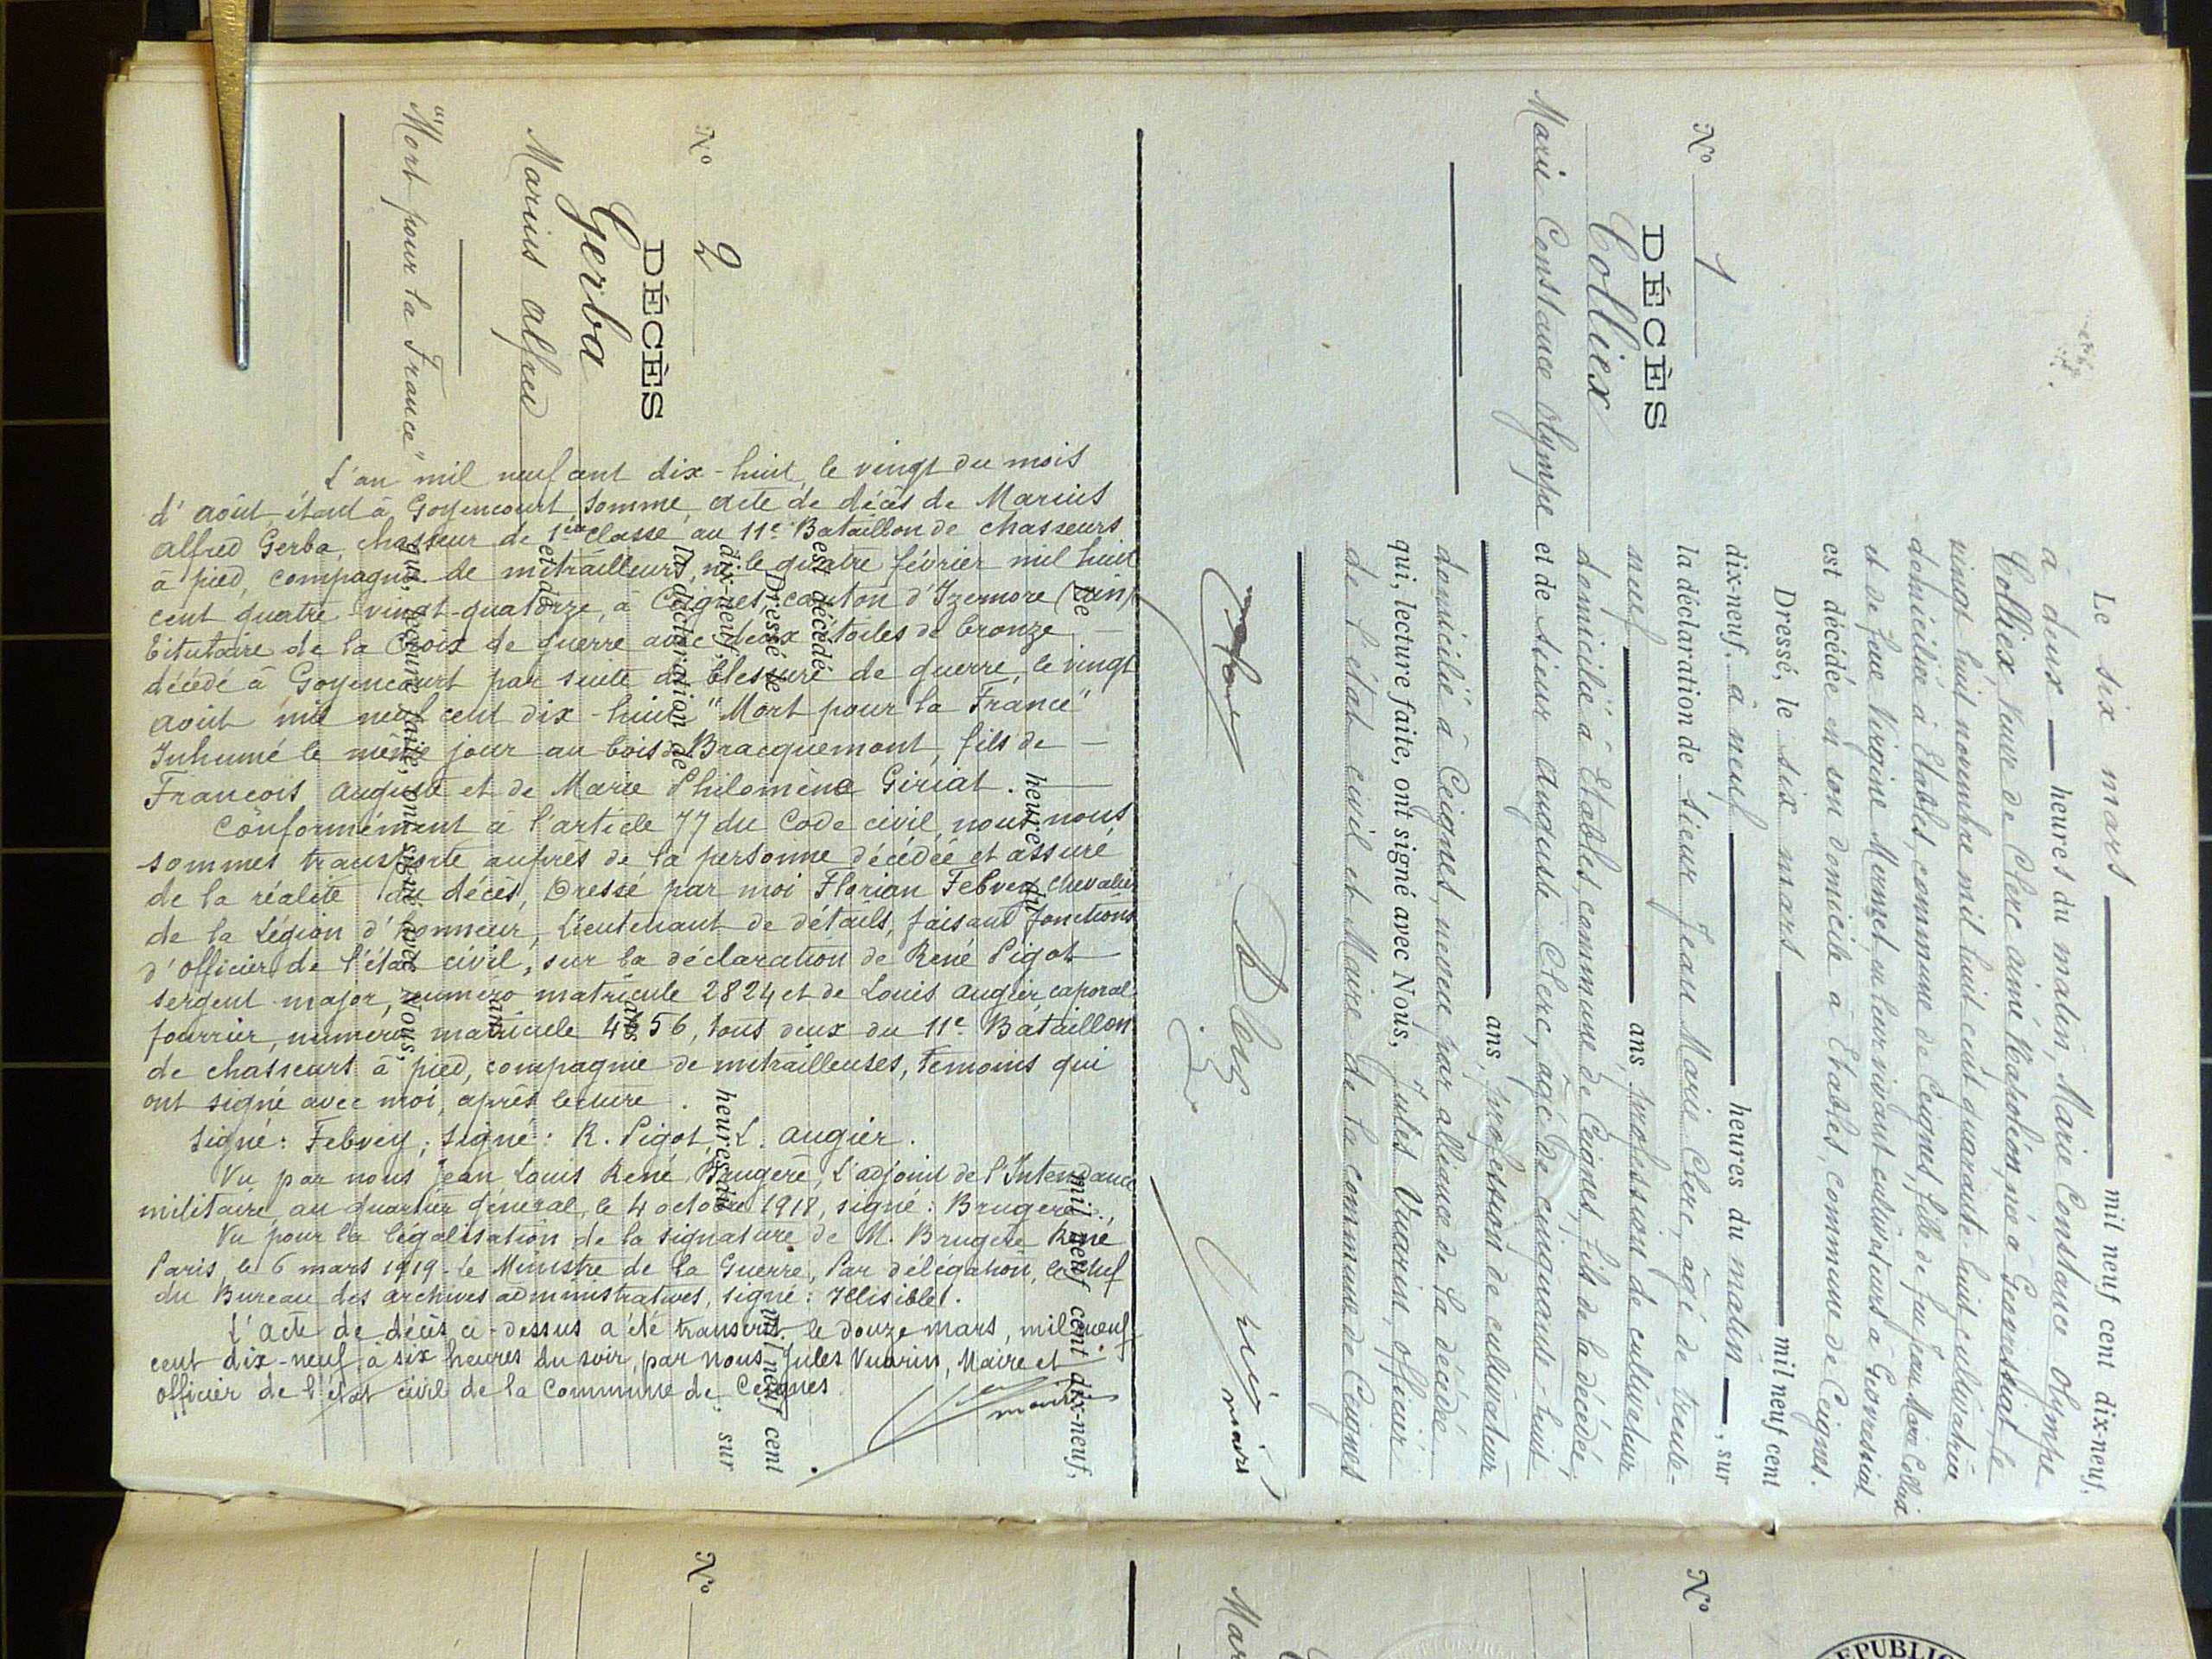 N° 1
DÉCÈS
Colliex
Marie Constance Olympe
Le six mars mil neuf cent dix-neuf,
à deux heures du matin, Marie Constance Olympe
Colliex, Veuve de Clerc aimé Napoléon, née à Géovressiat, le
vingt huit novembre mil huit cent quarante-huit, cultivatrice
domiciliée à Etables, commune de Ceignes, fille de feu Jean Marie Colliex
et de feue Virginie Mermet, en leur vivant cultivateurs à Géovressiat
est décédée en son domicile à Etables, commune de Ceignes.
Dressé, le six mars mil neuf cent
dix-neuf, à neuf heures du matin, sur
la déclaration de Sieur Jean Marie Clerc, âgé de trente-
neuf ans, profession de cultivateur
domicilié à Etables, commune de Ceignes, fils de la décédée,
et de Sieur Auguste Clerc, âgé de cinquante-huit
ans, profession de cultivateur
domicilié à Ceignes, neveu par alliance de la décédée
qui, lecture faite, ont signé avec Nous, Jules Vuarin, officier
de l'état civil et Maire de la commune de Ceignes
maire
N° 2
DÉCÈS
Gerba
Marius Alfred
"Mort pour la France"
L'an mil neuf cent dix-huit, le vingt du mois
d'août, étant à Goyencourt, Somme, acte de décès de Marius
Alfred Gerba, chasseur de 1ère classe au 11e Bataillon de chasseurs
à pied, compagnie de mitrailleurs, né le quatre février mil huit
cent quatre-vingt-quatorze, à Ceignes, canton d'Izernore (Ain)
titulaire de la Croix de guerre avec deux étoiles de bronze
décédé à Goyencourt par suite de blessure de guerre, le vingt
août mil neuf cent dix-huit "Mort pour la France"
Inhumé le même jour au bois de Bracquemont, fils de
François Auguste et de Marie Philomène Giriat.
Conformément à l'article 77 du Code civil, nous nous
sommes transporté auprès de la personne décédée et assuré
de la réalité du décès, Dressé par moi Florian Febvey, chevalier
de la Légion d'honneur, Lieutenant de détails, faisant fonctions
d'officier de l'état civil, sur la déclaration de René Pigot
sergent major, numéro matricule 2824 et de Louis Augier, caporal
fourrier, numéro matricule 4656, tous deux du 11e Bataillon
de chasseurs à pied, compagnie de mitrailleuses, témoins qui
ont signé avec moi, après lecture.
Signé: Febvey; signé: R. Pigot, L. Augier.
Vu par nous Jean Louis René Brugère, L'adjoint de l'Intendance
militaire au quartier général, le 4 octobre 1918, signé: Brugère.
Vu pour la légalisation de la signature de M. Brugère René
Paris, le 6 mars 1919. Le Ministre de la Guerre, Par délégation, le chef
du Bureau des archives administratives, signé: Illisible.
L'acte de décès ci-dessus a été transcrit le douze mars, mil neuf
cent dix-neuf, à six heures du soir, par nous Jules Vuarin, Maire et
officier de l'état civil de la Commune de Ceignes
maire
Le mil neuf cent dix-neuf,
heure du
est décédé
Dressé le mil neuf cent
dix-neuf, heures du sur
la déclaration de
ans
et de
ans
qui, lecture faite, ont signé avec Nous,
N°
N°
Mar